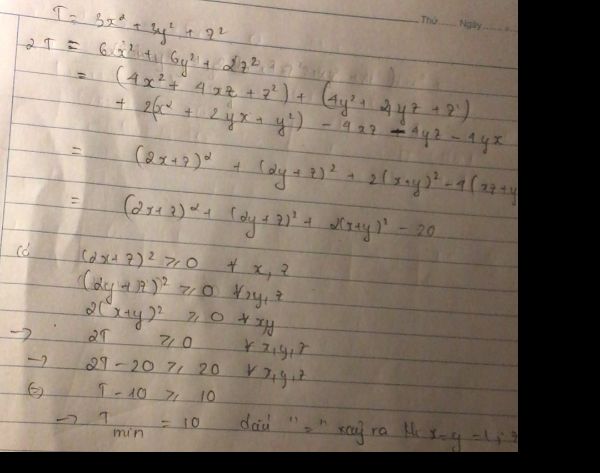 Thứ ..... Ngày .....
T = 3x² + 3y² + z²
2T = 6x² + 6y² + 2z²
= (4x² + 4xz + z²) + (4y² + 4yz + z²)
+ 2(x² + 2yx + y²) - 4xz - 4yz - 4yx
= (2x+z)² + (2y+z)² + 2(x+y)² - 4(xz+y
= (2x+z)² + (2y+z)² + 2(x+y)² - 20
Có (2x+z)² ⩾ 0 ∀ x, z
(2y+z)² ⩾ 0 ∀ y, z
2(x+y)² ⩾ 0 ∀ xy
→ 2T ⩾ 0 ∀ x, y, z
→ 2T - 20 ⩾ 20 ∀ x, y, z
(=) T - 10 ⩾ 10
→ T min = 10 dấu "=" xảy ra khi x=y=1;